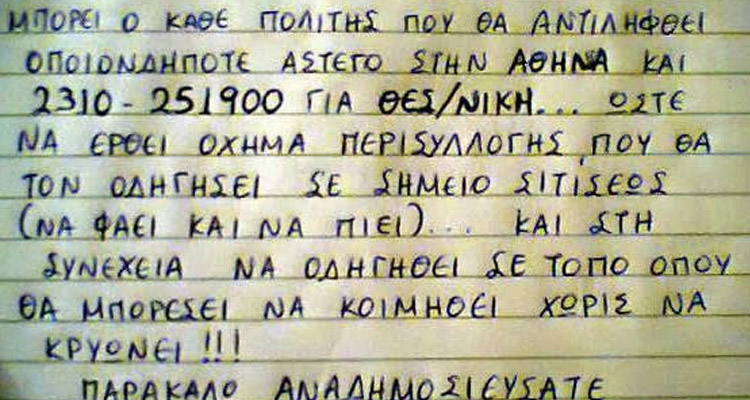 ΜΠΟΡΕΙ Ο ΚΑΘΕ ΠΟΛΙΤΗΣ ΠΟΥ ΘΑ ΑΝΤΙΛΗΦΘΕΙ
ΟΠΟΙΟΝΔΗΠΟΤΕ ΑΣΤΕΓΟ ΣΤΗΝ ΑΘΗΝΑ ΚΑΙ
2310-251900 ΓΙΑ ΘΕΣ/ΝΙΚΗ... ΩΣΤΕ
ΝΑ ΕΡΘΕΙ ΟΧΗΜΑ ΠΕΡΙΣΥΛΛΟΓΗΣ, ΠΟΥ ΘΑ
ΤΟΝ ΟΔΗΓΗΣΕΙ ΣΕ ΣΗΜΕΙΟ ΣΙΤΙΣΕΩΣ
(ΝΑ ΦΑΕΙ ΚΑΙ ΝΑ ΠΙΕΙ)... ΚΑΙ ΣΤΗ
ΣΥΝΕΧΕΙΑ ΝΑ ΟΔΗΓΗΘΕΙ ΣΕ ΤΟΠΟ ΟΠΟΥ
ΘΑ ΜΠΟΡΕΣΕΙ ΝΑ ΚΟΙΜΗΘΕΙ ΧΩΡΙΣ ΝΑ
ΚΡΥΩΝΕΙ!!!
ΠΑΡΑΚΑΛΩ ΑΝΑΔΗΜΟΣΙΕΥΣΑΤΕ